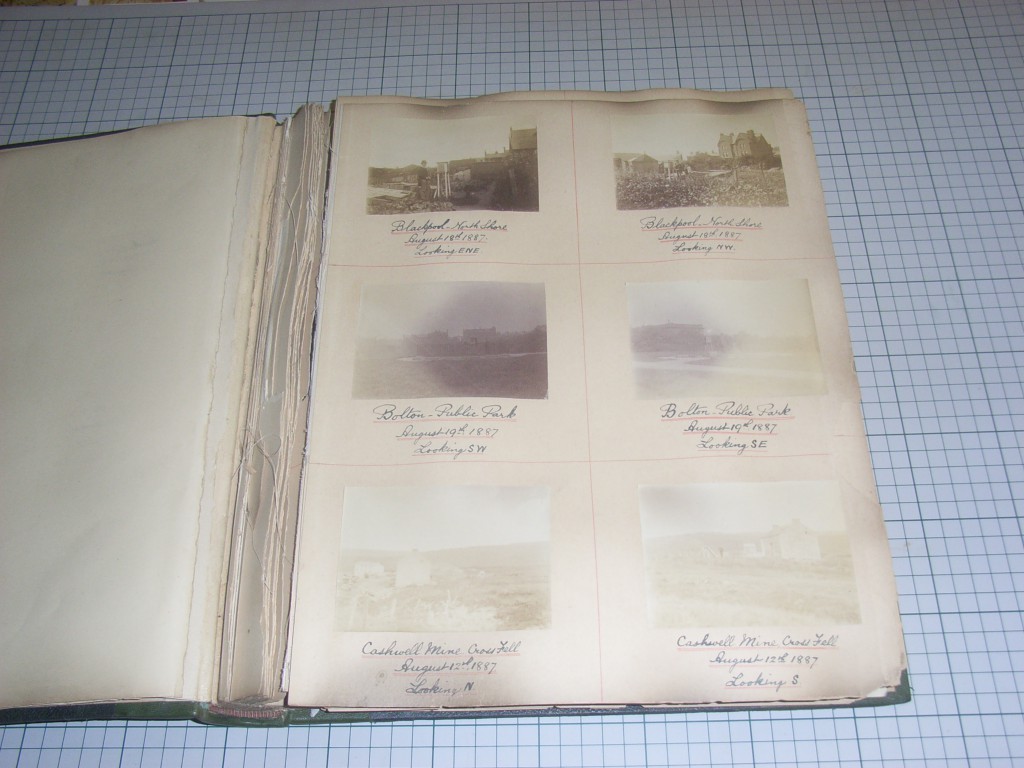 Blackpool-North Shore
August 18th 1887.
Looking ENE
Blackpool-North Shore
August 18th 1887.
Looking NW.
Bolton-Public Park
August 19th 1887
Looking SW
Bolton-Public Park
August 19th 1887
Looking SE
Cashwell Mine, Cross Fell
August 12th 1887
Looking N
Cashwell Mine, Cross Fell
August 12th 1887
Looking S